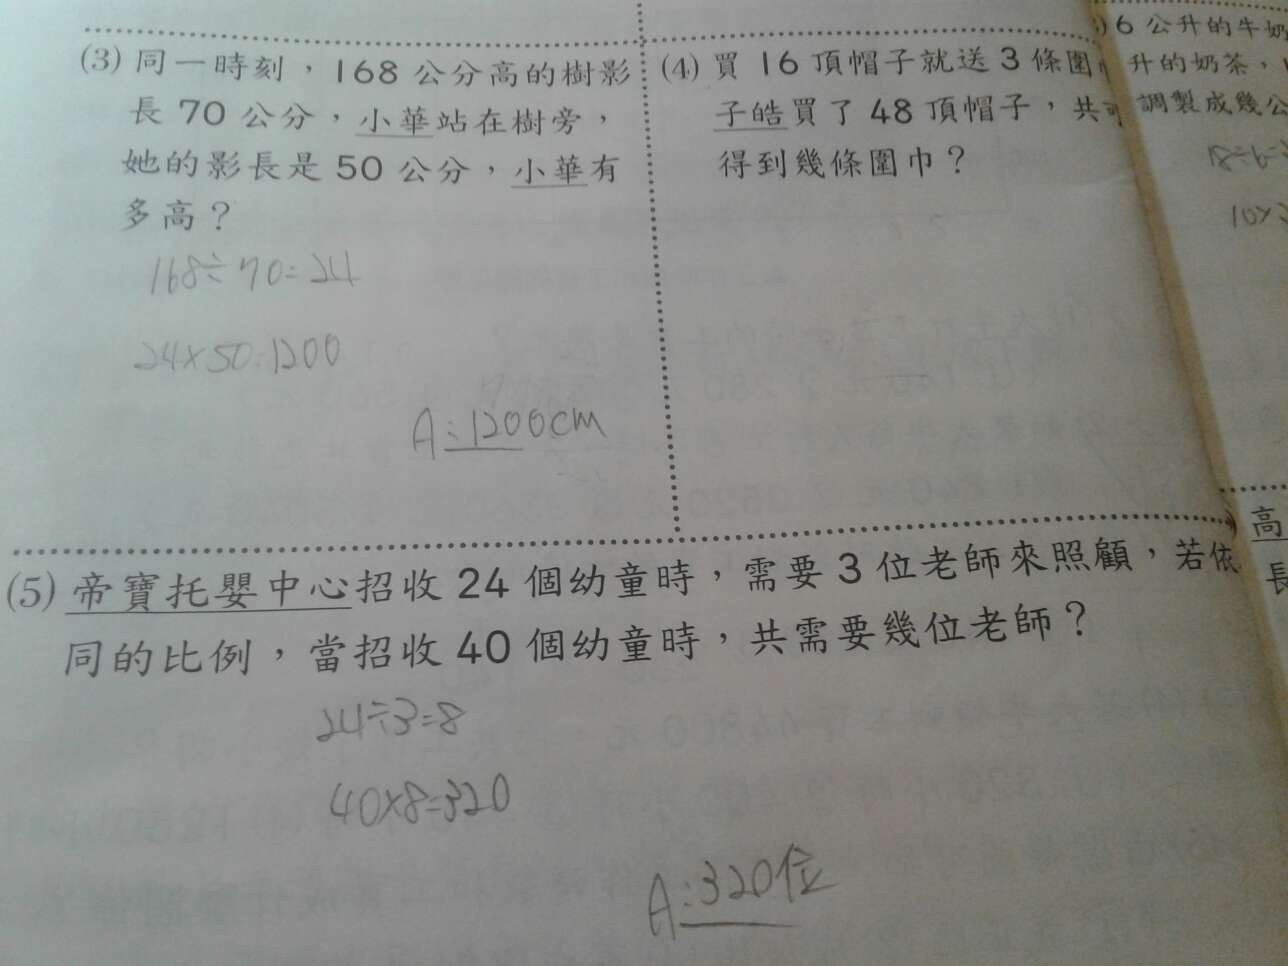 (3) 同一時刻，168 公分高的樹影
長 70 公分，小華站在樹旁，
她的影長是 50 公分，小華有
多高？
168÷70=24
24×50=1200
A:1200cm
(4) 買 16 頂帽子就送 3 條圍
子皓買了 48 頂帽子，共可
得到幾條圍巾？
6 公升的牛奶
升的奶茶，
調製成幾公
10×
高
長
(5) 帝寶托嬰中心招收 24 個幼童時，需要 3 位老師來照顧，若依
同的比例，當招收 40 個幼童時，共需要幾位老師？
24÷3=8
40×8=320
A:320位